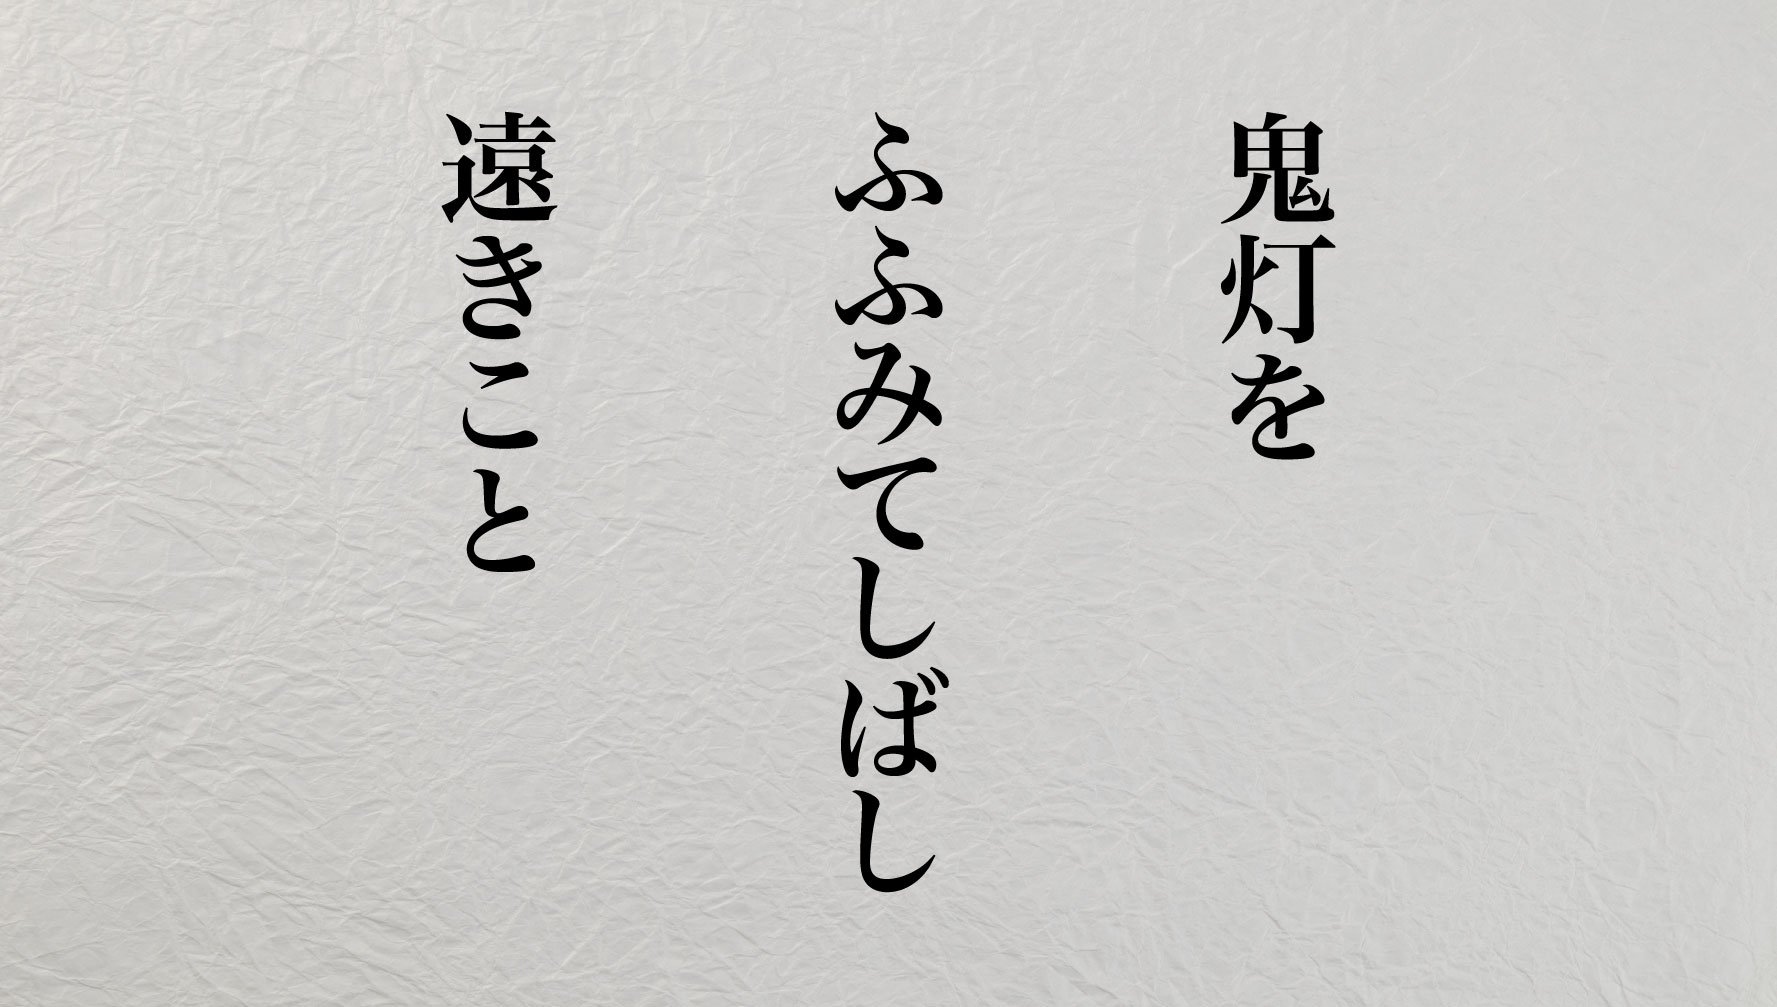 鬼灯を
ふふみてしばし
遠きこと